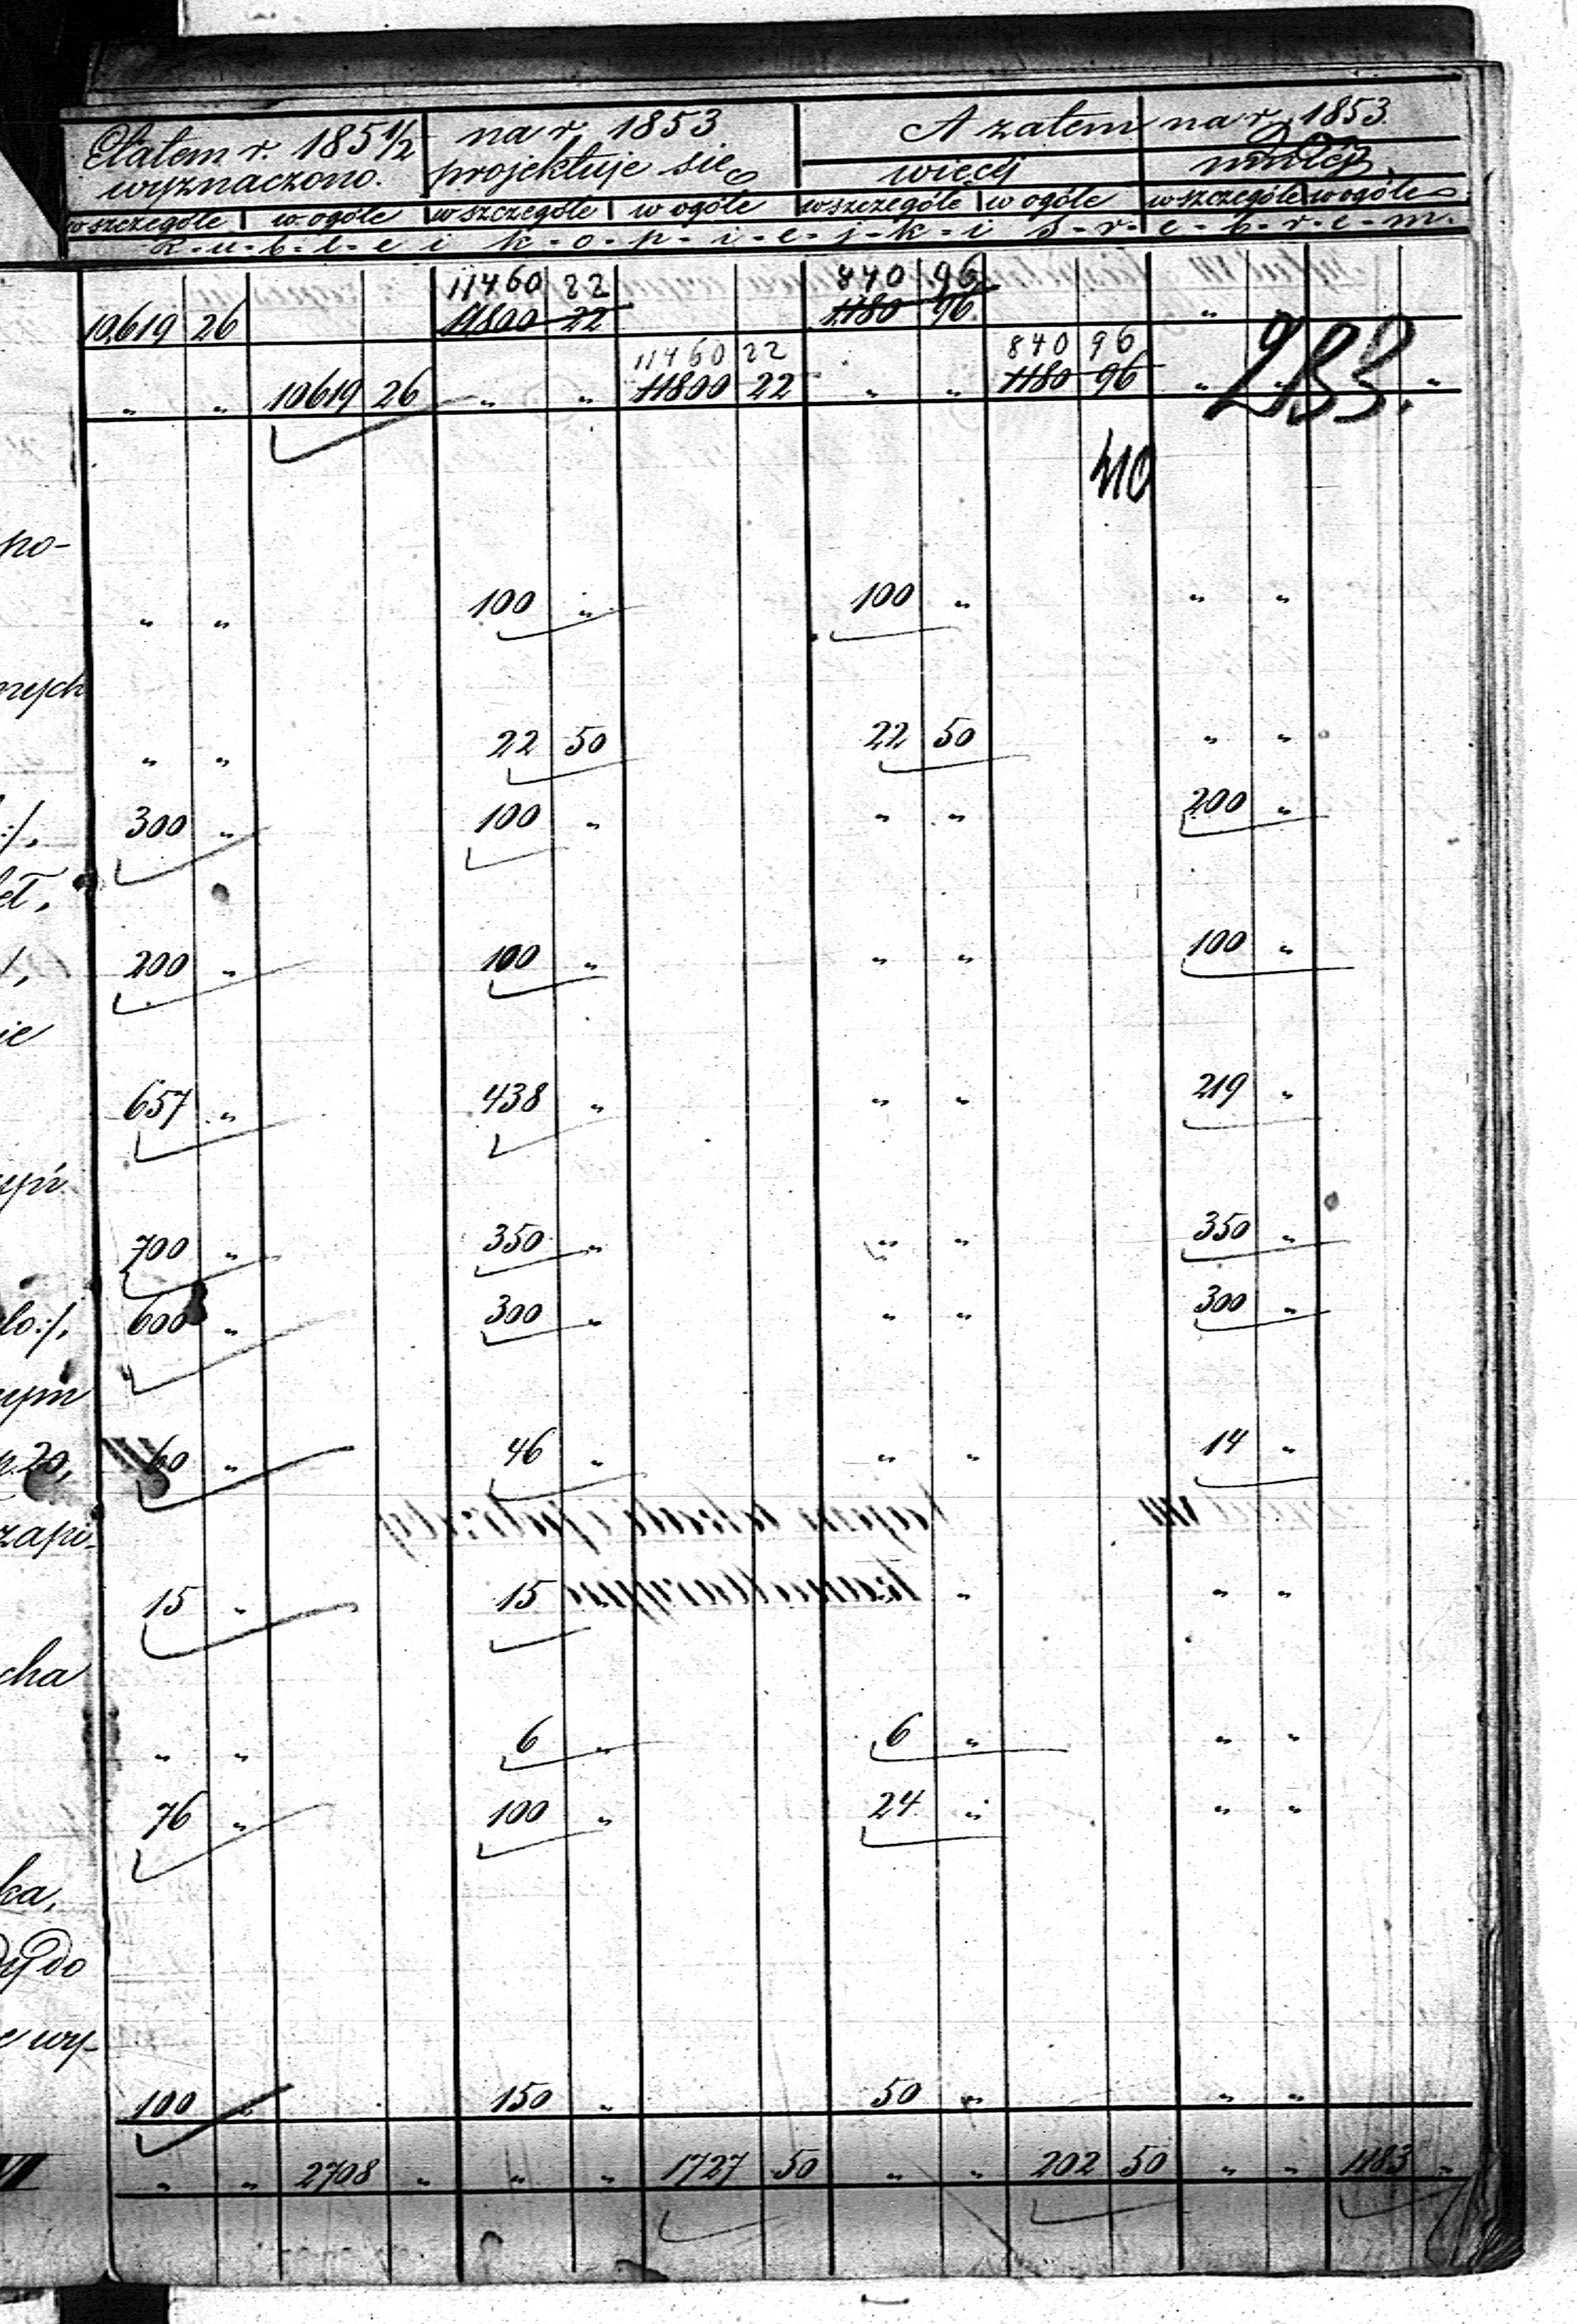 Etatem r. 185 1/2 wyznaczono. | na r. 1853 projektuje się | A zatem na r. 1853.
więcej | mniej
w szczególe | w ogóle | w szczególe | w ogóle | w szczególe | w ogóle | w szczególe | w ogóle
R-u-b-l-e i k-o-p-i-e-j-k-i s-r-e-b-r-e-m.
11460 22 | 840 96
10,619 26 | 11800 22 | 1180 96 | "
11460 22 | 840 96
" " | 10619 26 | " " | 11800 22 | " " | 1180 96 | " " | " "
283.
410
po-
" " | 100 " | 100 " | " "
nych
" " | 22 50 | 22 50 | " "
:/, 300 " | 100 " | " " | 200 "
et,
/, 200 " | 100 " | " " | 100 "
ie
657 " | 438 " | " " | 219 "
700 " | 350 " | " " | 350 "
lo:/, 600 " | 300 " | " " | 300 "
nym
20, 60 " | 46 " | " " | 14 "
zapi-
15 " | 15 " | " " | " "
cha
" " | 6 " | 6 " | " "
76 " | 100 " | 24 " | " "
ka,
dy do
e wy-
100 " | 150 " | 50 " | " "
VI " " | 2708 " | " " | 1727 50 | " " | 202 50 | " " | 1183 "